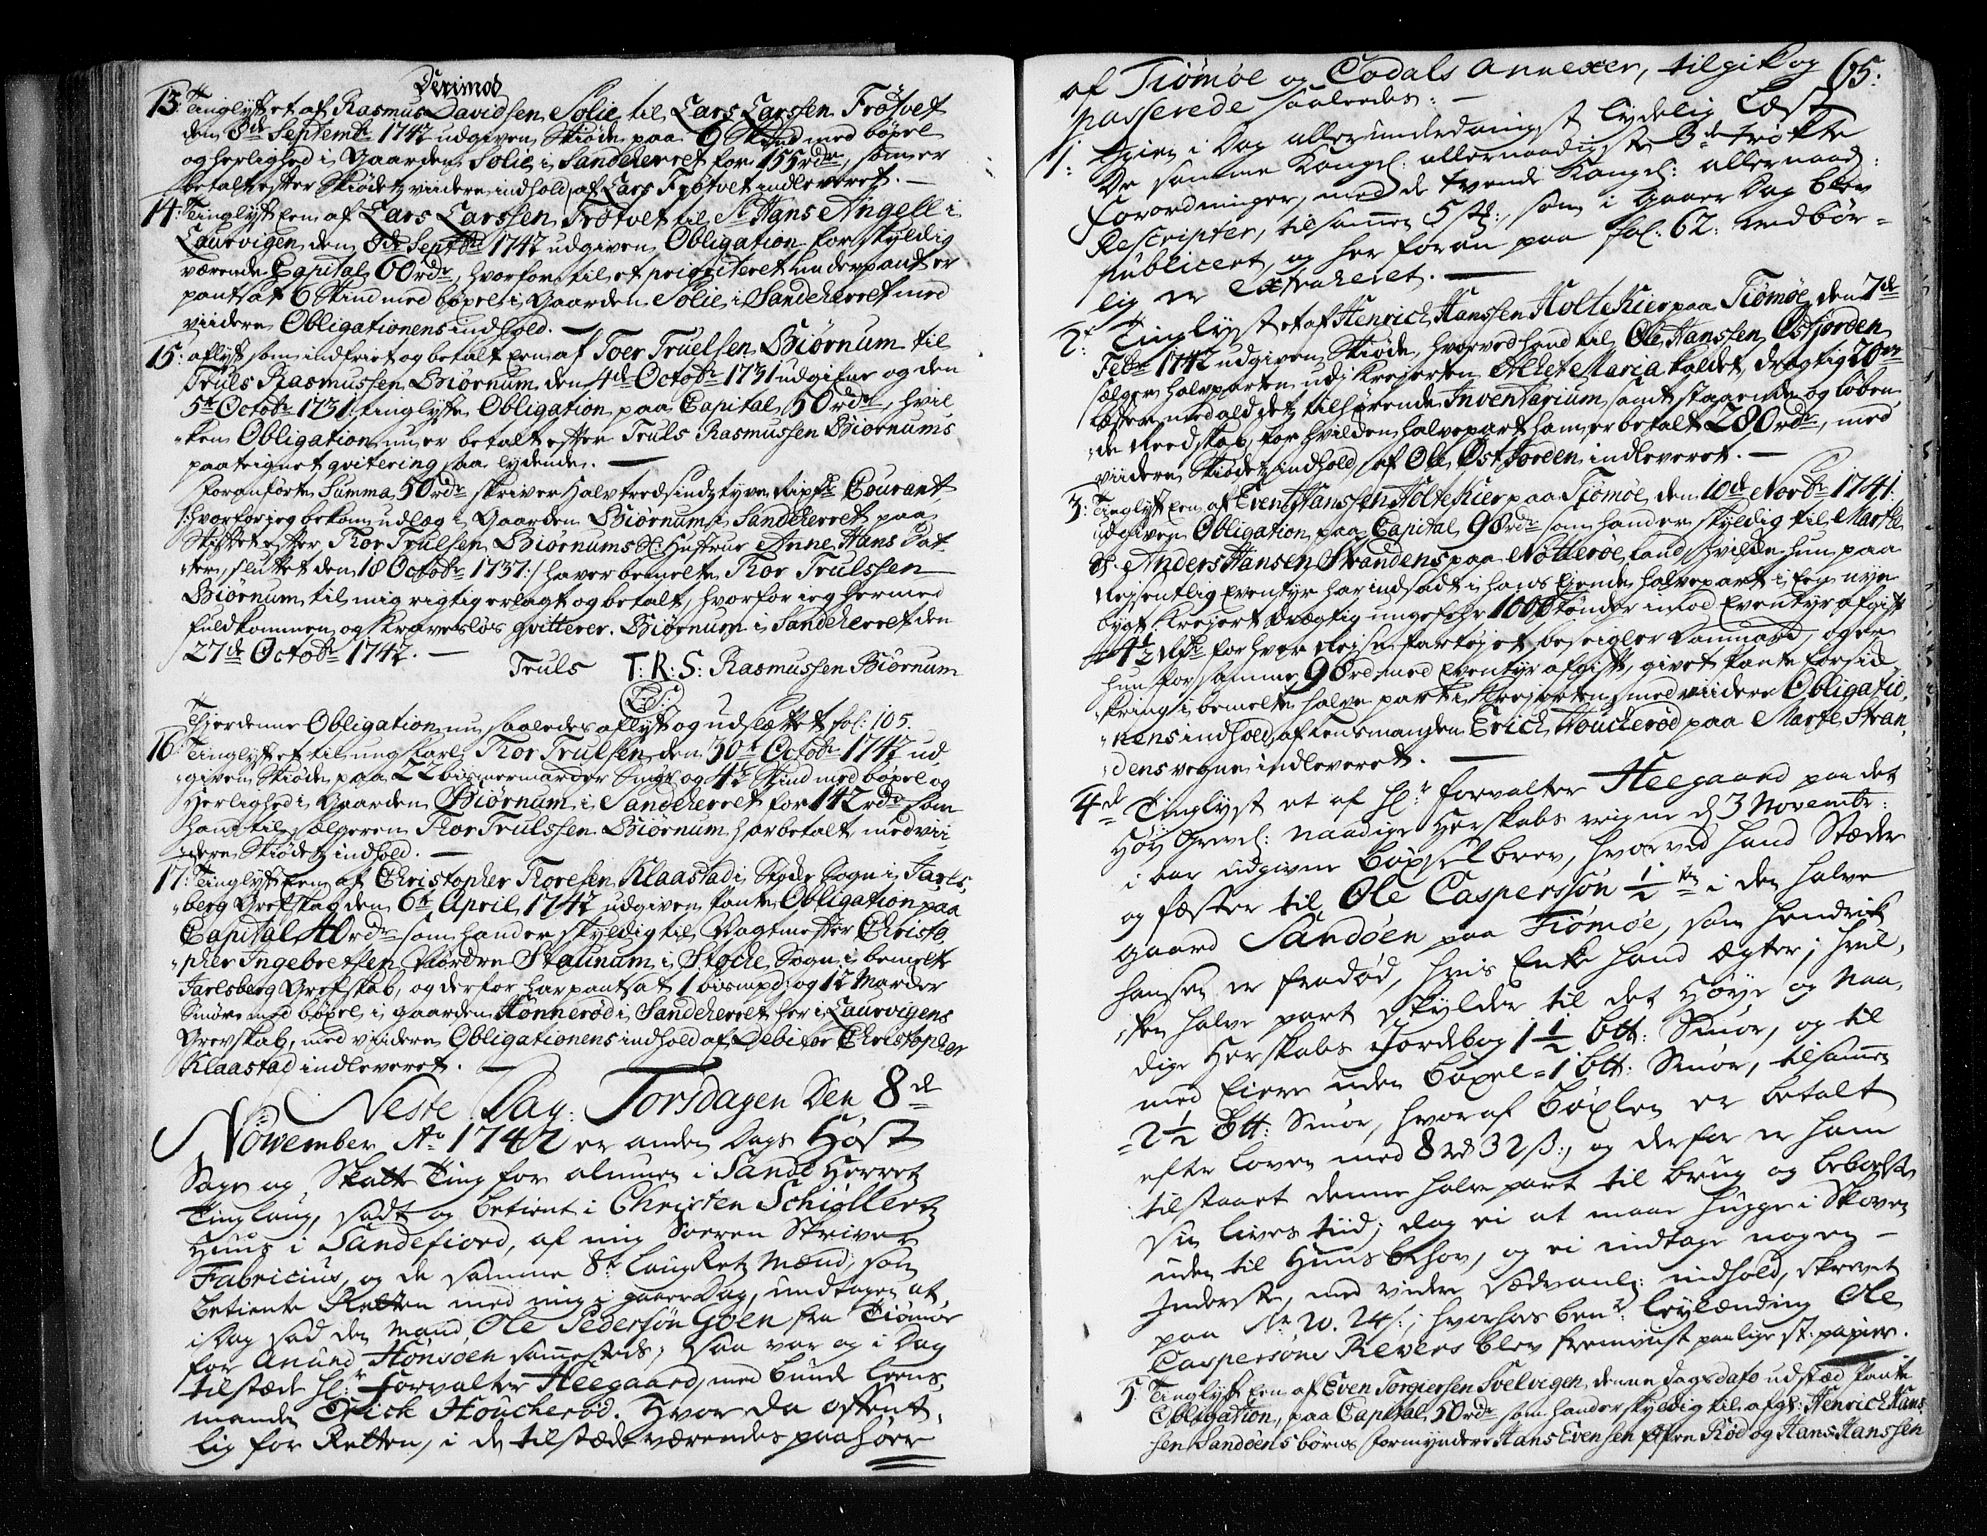 Derimod
13. Tinglyst et af Rasmus Davidsen Solie til Lars Larssen Frøtvet
den 8de Septembr 1742 udgiven Skiøde paa 9 Skind med böxel
og herlighed i Gaarden Solie i Sandeherret for 155 rdr, som er
betalt efter Skiødetz viidere indhold, af Lars Frøtvet indleveret. —
14. Tinglyst een af Lars Larssen Frøtvet til Sr Hans Angell i
Laurvigen den 8de Septbr 1742 udgiven Obligation for skyldig
værende Capital 60 rdr, hvorfor til et prioziteret underpant er
pantsat 6 Skind med böxel i Gaarden Solie i Sandeherret med
viidere Obligationens indhold. —
15. aflyst som indfriet og betalt een af Toer Truelsen Biørnum til
Truls Rasmussen Biørnum den 4de Octobr 1731 udgifne og den
5te Octobr 1731 tinglyste Obligation paa Capital 50 rdr, hvil
ken Obligation nu er betalt efter Truls Rasmussen Biørnums
paateignet qvitering saa lydende. —
Foranførte Summa 50 rdr skriver Halvtredsindztyve Ripsdr Courant
/: hvorfor jeg bekom udlæg i Gaarden Biørnum i Sandeherret paa
Skiftet efter Thor Trulsen Biørnums Sl: Hustrue Anne Hans Dat
ter, sluttet den 18 Octobr 1737 :/ haver bemelte Thor Trulssen
Biørnum til mig rigtig erlagt og betalt, hvorfor jeg hermed
fuldkommen og kravesløs qvitterer. Biørnum i Sandeherret den
27de Octobr 1742. —
Truls T: R: S: Rasmussen Biørnum
Er denne Obligation nu saaledes aflyst og udslettet fol: 105.
16. Tinglyst et til ung Karl Thor Trulsen den 30te Octobr 1742 ud
given Skiøde paa 22 bismermarder Smør og 4½ Skind med böxel og
Herlighed i Gaarden Biørnum i Sandeherret for 142 rdr som
hand til sælgeren Thor Trulssen Biørnum har betalt med vii
dere Skiødetz indhold. —
17. Tinglyst een af Christopher Thoresen Klaastad i Stocke Sogn i Jarls
berg Grefskab den 6te April 1742 udgiven pante Obligation paa
Capital 40 rdr som hand er skyldig til Vagtmester Christo
pher Ingebretsen Nordre Staunum i Stocke Sogn i bemelte
Jarlsberg Grefskab, og derfor har pantsat 1 bismpd og 12 Marder
Smør med böxel i gaarden Honnerød i Sandeherret her i Laurvigens
Grevskab, med viidere Obligationens indhold af Debitor Christopher
Klaastad indleveret. —
Neste Dag: Torsdagen den 8de
Nowember Ao 1742 er anden Dags Höst
Sage og Skatte Ting for almuen i Sande Herret
Tinglaug, sadt og betient i Christen Schiøllertz
Huus i Sandefiord, af mig Soeren Skriver
Fabricius, og de samme 8te Laug Retz Mænd, som
betiente Retten med mig i gaar Dag, undtagen at
i Dag sad den Mand Ole Pedersøn Goen fra Tiömöe
for Anund Hönsöen sammesteds; Saa var og i Dag
tilstæde hl:r Forvalter Heegaard, med bunde Leens
manden Erick Houcheröd. Hvor da offent
lig for Retten, i de tilstædeværendes paahöer
65:
af Tiömöe og Codals Annexer, tilgik og
passerede saaledes: —
1: Er i Dag allerunderdanigst lydelig læst
De samme Kongel: allernaadigste 3de trökte
Forordninger, med de tvende Kongel: allernaad:
Rescripter, tilsamen 5 st:, som i Gaar Dag blev
publiceret, og her foran paa fol: 62: vedbör=
lig er extraheret. —
2: Tinglyst et af Henrich Hanssen Holtekier paa Tiömöe den 7de
Febr 1742 udgiven Skiøde, hvorved hand til Ole Hanssen Østjorden
sælger halvparten udj Kreierten Allet Maria kaldet, drægtig 20ve
læster, med ald detz tilhørende Inventarium, samt staaende og løben
de Reedskab, for hvilden halvepart ham er betalt 280 rdr, med
viidere Skiødetz indhold, af Ole Østjorden indleveret. —
3: Tinglyst een af Even Hanssen Holtekier paa Tiömöe den 10de Novbr 1741.
udgiven Obligation paa Capital 96 rdr som hand er skyldig til Marte
Sl. Anders Hansen Strandens paa Nötteröe land, hvilde hun paa
Rejsentlig Eventyr har indsadt i hans Ejende halvepart i een nye
bygt Kreiert drægtig ungefehr 1000 tönder imod Eventyr afgift
4½ Rdr for hver Reise fartøjet beseigler Danmard, og er
hun for samme 96 rd, med Eventyr afgift, givet pante forsid
kring i bemelte halve part i Kreierten, med viidere Obligatio
nens indhold, af Lensmanden Erich Houcheröd paa Marte Stran
dens vegne indleveret. —
4de Tinglyst et af hl:r Forvalter Heegaard paa det
Höy Grevl: Naadige Herskabs veigne d 3 Novembr:
i aar udgivne böxsel brev, hvorved hand Stæder
og fæster til Ole Caspersøn ½ i den halve
gaard Sandöen paa Tiömöe, som Hendrik
Hansen er fradöd, hvis Enke hand ægter; hvil
ken halve part skylder til det Höye og Naa
dige Herskabs Jordebog 1½ btt: Smör, og til
med Eiere uden böxel 1 btt: Smör, tilsamen
2½ btt: Smör, hvoraf böxlen er betalt
efter loven med 8 rd 32 β:, og derfor er ham
tilstaaet denne halve part til brug og beboelse
sin lives tiid; dog ei at maae hugge i Skoven
uden til Huusbehov, og ei indtage nogen
Inderste, med videre sædvanl: indhold, skrevet
paa No 20. 24 s:, hvorhos benr leylænding Ole
Caspersøns Revers blev fremviist paa lige st: papier.
5. Tinglyst een af Even Torgiersen Solvigen, denne dags dato udstæd pante
Obligation, paa Capital 50 rdr som hand er skyldig til afg: Henrich Hans
sen Sandøens børns formyndere Hans Evensen Røed og Hans Hanssen